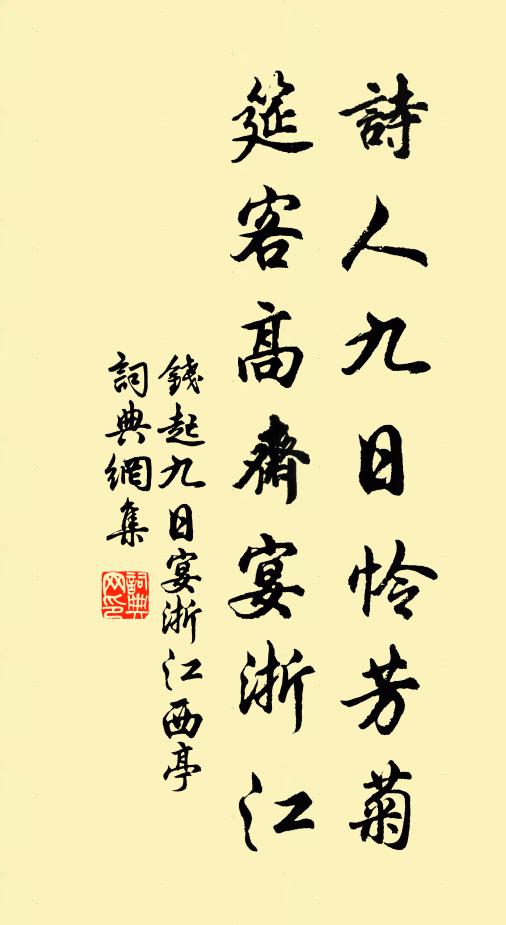 詩人九日怜芳菊
筵客高齋宴浙江
錢起九日宴浙江西亭
詞典網集
詞典網印